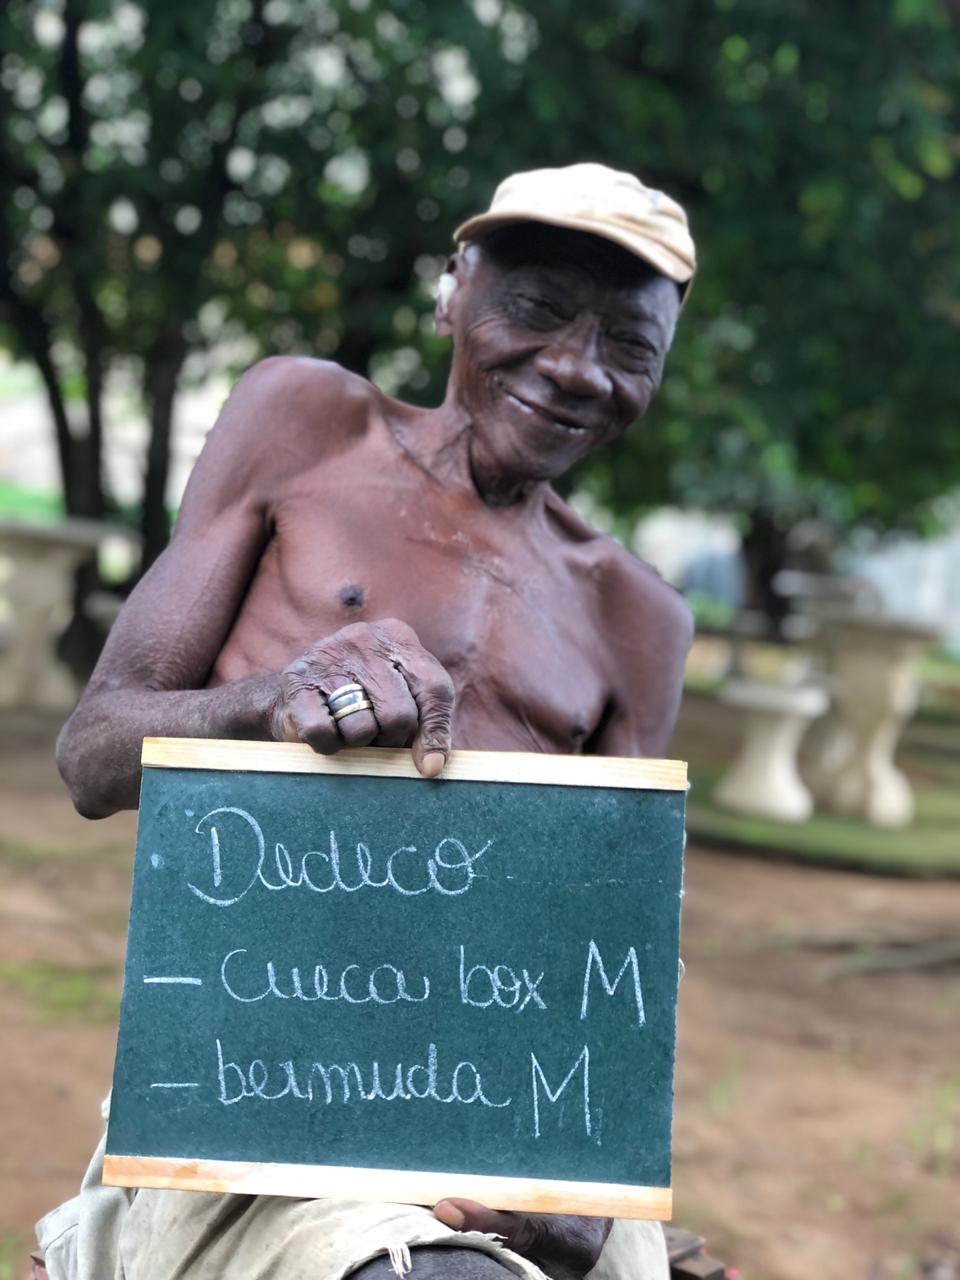 Dedeco
- cueca box M
- bermuda M